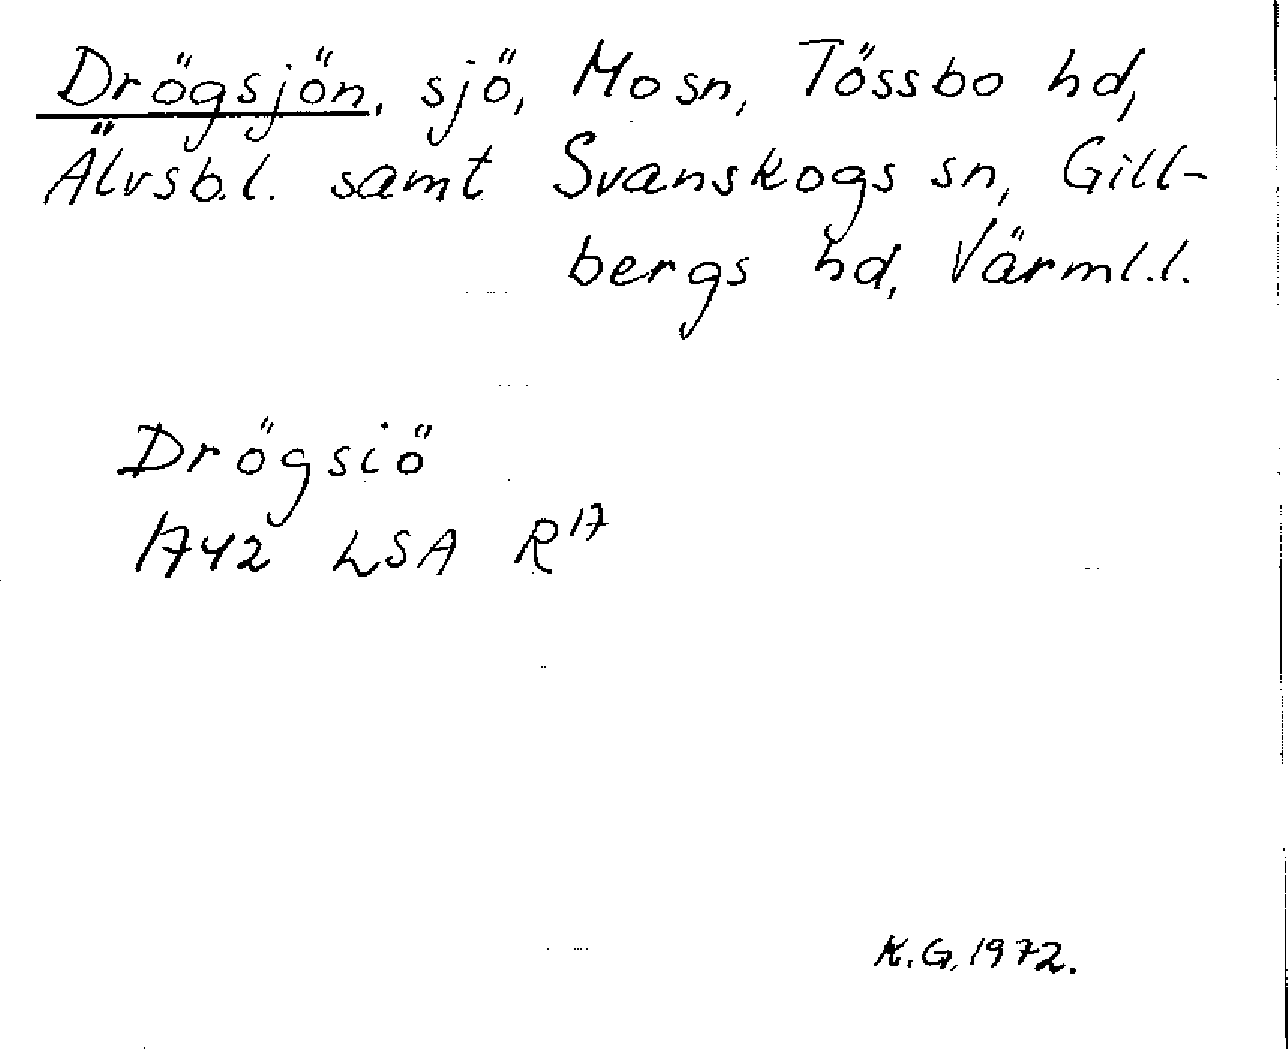 Drögsjön, sjö, Mo sn, Tössbo hd,
Älvsb.l. samt Svanskogs sn, Gill-
bergs hd, Värml.l.
Drögsiö
1742 LSA R¹⁷
K.G. 1972.